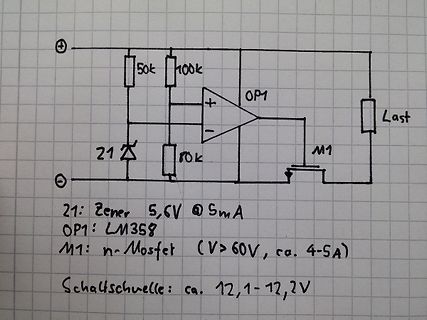 ⊕
50k
100k
OP1
+
Last
−
M1
Z1
80k
⊖
Z1: Zener 5,6V @ 5mA
OP1: LM358
M1: n-Mosfet (V>60V, ca. 4-5A)
Schaltschwelle: ca. 12,1-12,2V